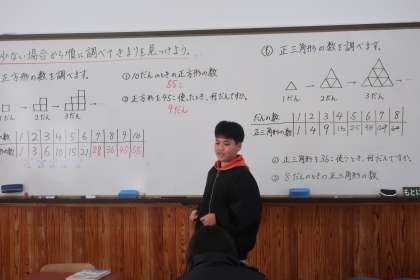 少ない場合から順に調べてきまりを見つけよう。
正方形の数を調べます。
1だん 2だん 3だん
の数 1 2 3 4 5 6 7 8 9 10
の数 1 3 6 10 15 21 28 36 45 55
①10だんのときの正方形の数
55こ
②正方形を45こ使ったとき、何だんですか。
9だん
正三角形の数を調べます。
1だん 2だん 3だん
だんの数 1 2 3 4 5 6 7 8
正三角形の数 1 4 9 16 25 36 49
①正三角形を36こ使うとき、何だんですか。
②8だんのときの正三角形の数